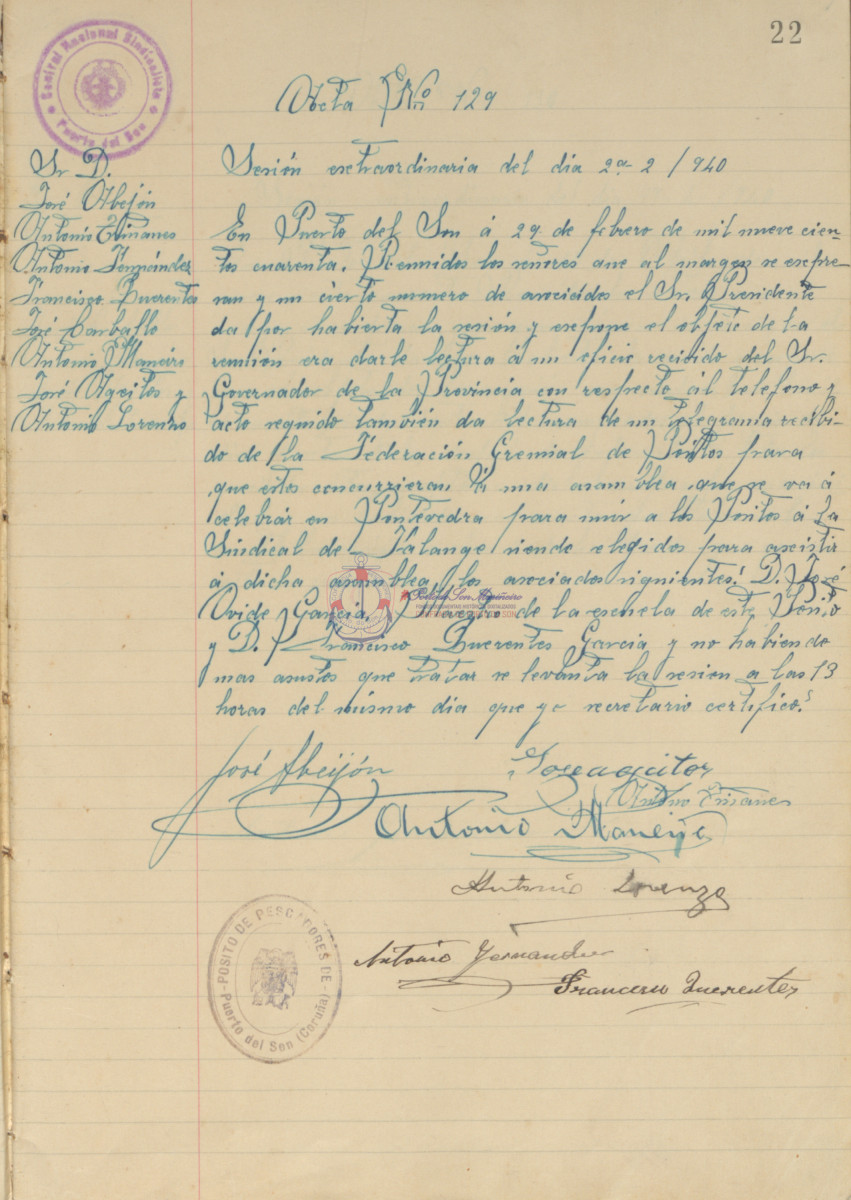 22
Central Nacional Sindicalista
Puerto del Son
Acta Nº 129
Sr D.
José Abeijón
Antonio Eiñanes
Antonio Fernández
Francisco Querentes
José Carballo
Antonio Maneiro
José Ageitos y
Antonio Lorenzo
Sesión extraordinaria del dia 29 2 / 940
En Puerto del Son á 29 de febrero de mil nueve cien-
tos cuarenta. Reunidos los señores que al margen se expre-
san y un cierto numero de asociados el Sr. Presidente
da por habierta la sesión y expone el objeto de la
reunión era darle lectura á un oficio recibido del Sr.
Governador de la Provincia con respecto al telefono y
acto seguido también da lectura de un telegrama recibi-
do de la Federación Gremial de Pósitos para
que estos concurrieran á una asamblea que se va á
celebrár en Pontevedra para unir a los Pósitos á la
Sindical de Falange siendo elegidos para asistir
á dicha asamblea los asociados siguientes: D. José
Ovide Garcia, Maestro de la escuela de este Pósito
y D. Francisco Querentes Garcia y no habiendo
mas asuntos que tratar se levanta la sesion a las 13
horas del mismo dia que yo secretario certifico.
José Abeijón
Jose ageitos
Antonio Eiñanes
Antonio Maneiro
Antonio Lorenzo
Antonio Fernandez
Francisco Querentes
POSITO DE PESCADORES DE
Puerto del Son (Coruña)